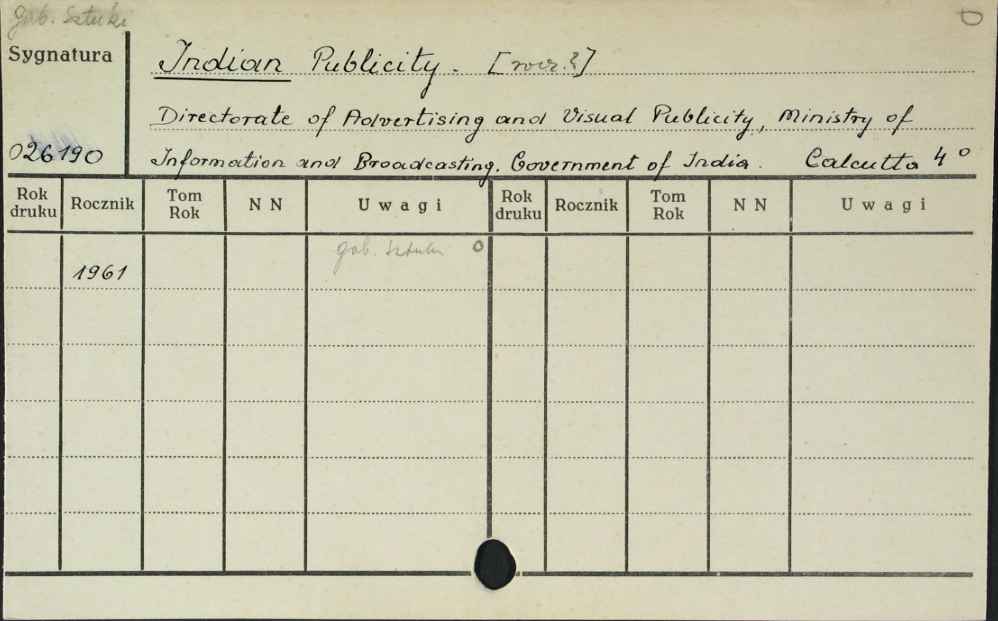 gab. Sztuki
Sygnatura
026190
Indian Publicity. [rocz.?]
Directorate of Advertising and Visual Publicity, Ministry of
Information and Broadcasting. Government of India. Calcutta 4°
Rok druku Rocznik Tom Rok NN Uwagi Rok druku Rocznik Tom Rok NN Uwagi
gab. Sztuki 0
1961